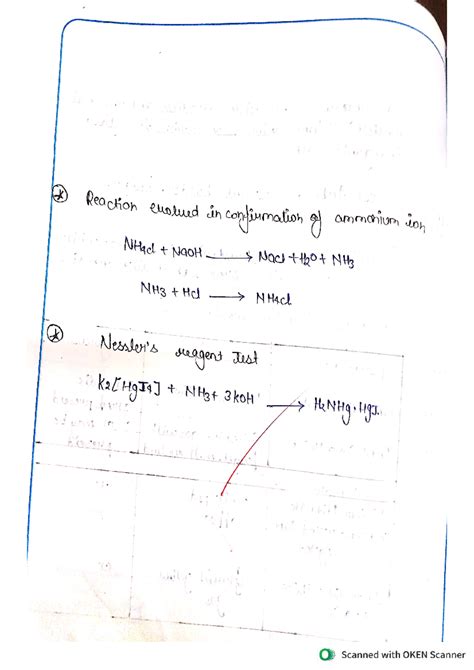 Reaction evolued in confirmation of ammonium ion
NH4cl + NaOH → Nacl + H2O + NH3
NH3 + Hcl → NH4cl
Nessler's reagent Test
K2[HgI4] + NH3 + 3KOH → H2NHg·HgI
Scanned with OKEN Scanner